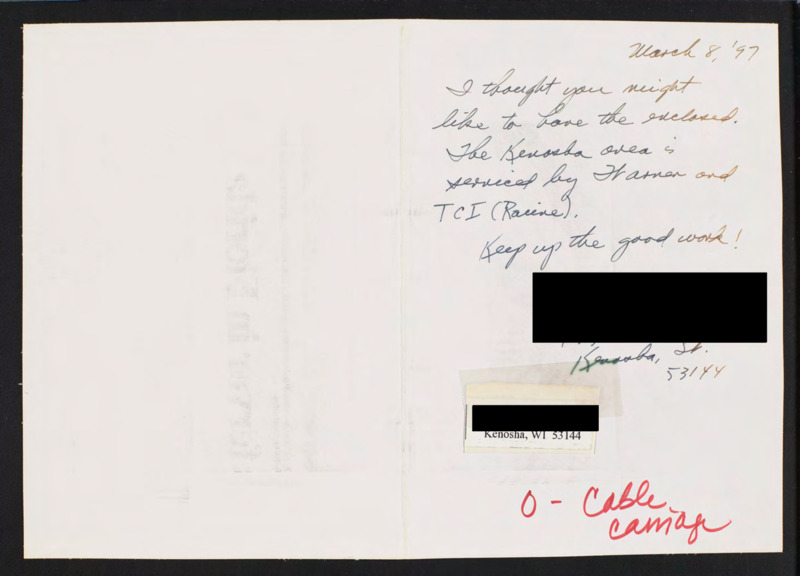 March 8, '97
I thought you might
like to have the enclosed.
The Kenosha area is
serviced by Warner and
TCI (Racine).
Keep up the good work!
Kenosha, W.
53144
Kenosha, WI 53144
O - Cable
carriage